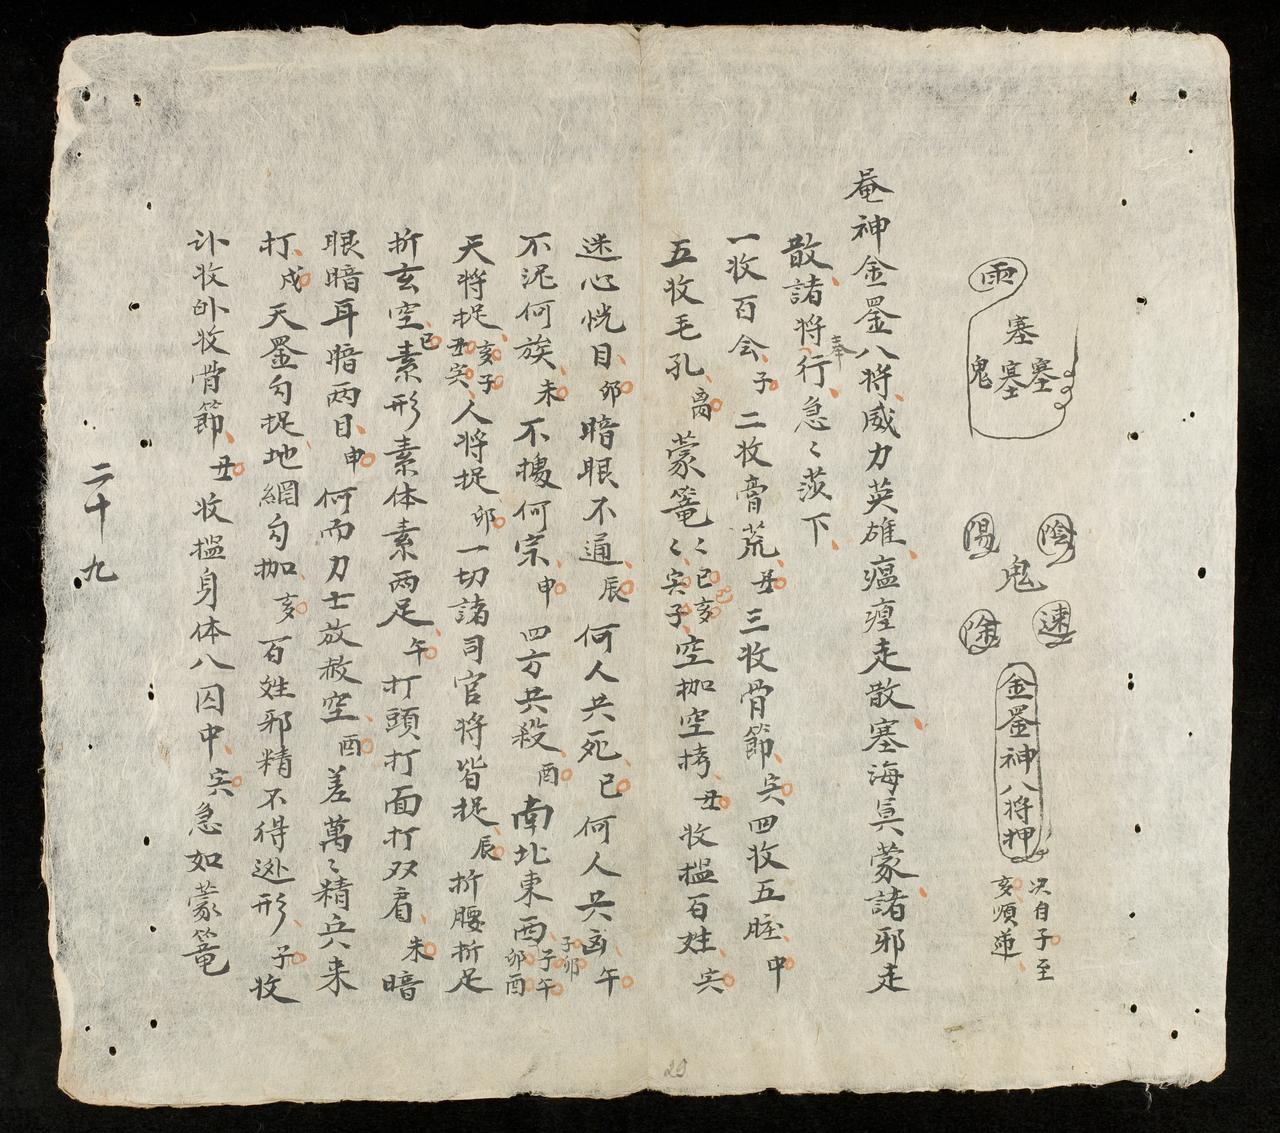 雨
塞
鬼塞塞
陰
陽
鬼
速
除
金罡神八将押
次自子至
亥順逆
菴神金罡八将威力英雄瘟瘴走散塞海冥蒙諸邪走
散諸将奉行急〻茨下
一收百会子二收膏荒丑三收骨節寅四收五胵申
五收毛孔离蒙篭〻〻巳亥寅子空枷空拷丑收揾百姓寅
迷心恍目卯暗眼不通辰何人共死巳何人共凶午
不泥何族未不擾何宗申四方共殺酉南北東西子午卯酉子卯
天将捉亥子丑寅人将捉卯一切諸司官将皆捉辰折腰折足
折玄空巳素形素体素两足午打頭打面打双肩未暗
眼暗耳暗两目申何而刀士放赦空酉差萬〻精兵来
打戍天罡勾捉地網勾枷亥百姓邪精不得迯形子收
卦收卧收骨節丑收揾身体八囚中寅急如蒙篭
二十九
29